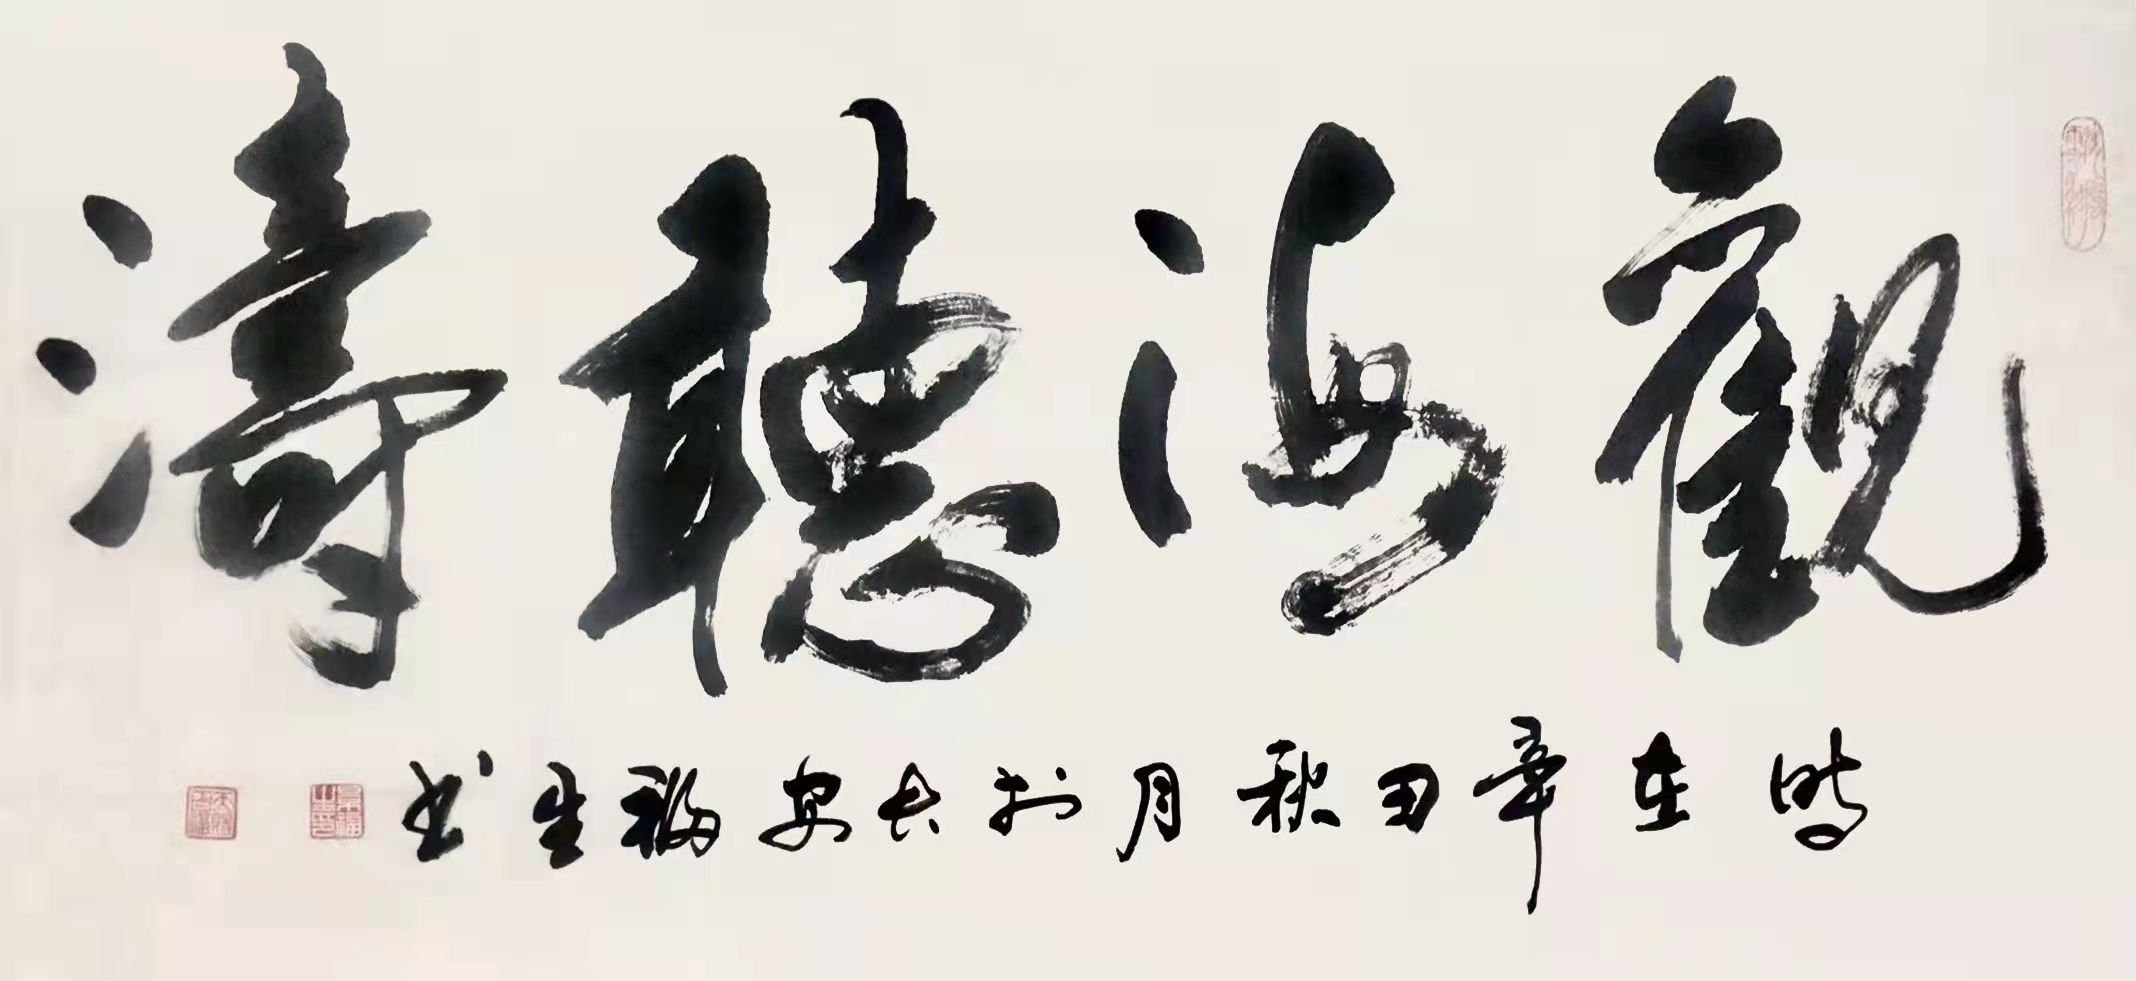 觀海聽濤
時在辛丑秋月於長安福生書